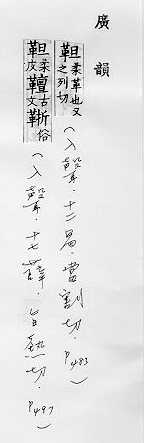 廣韻
靼柔革也又之列切(入聲.十二曷.當割切.P483)
靼柔皮䡀古文䩢俗(入聲.十七薛.旨熱切.P497)